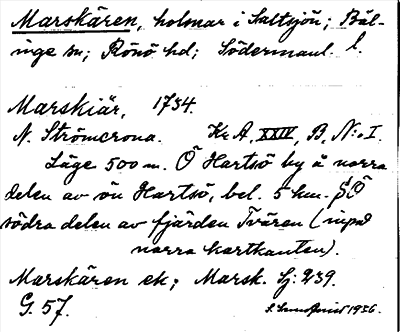 Marskären, holmar i Saltsjön; Bäl-
inge sn; Rönö hd; Södermanl. l.
Marskiär, 1734.
N. Strömcrona. Kr. A, XXIV, B, N:o I.
Läge 500 m. Ö Hartsö by å norra
delen av ön Hartsö, bel. 5 km. SÖ
södra delen av fjärden Tvären (inpå
norra kartkanten).
Marskären ek; Marsk. Sj: 239.
G. 57.
1936.